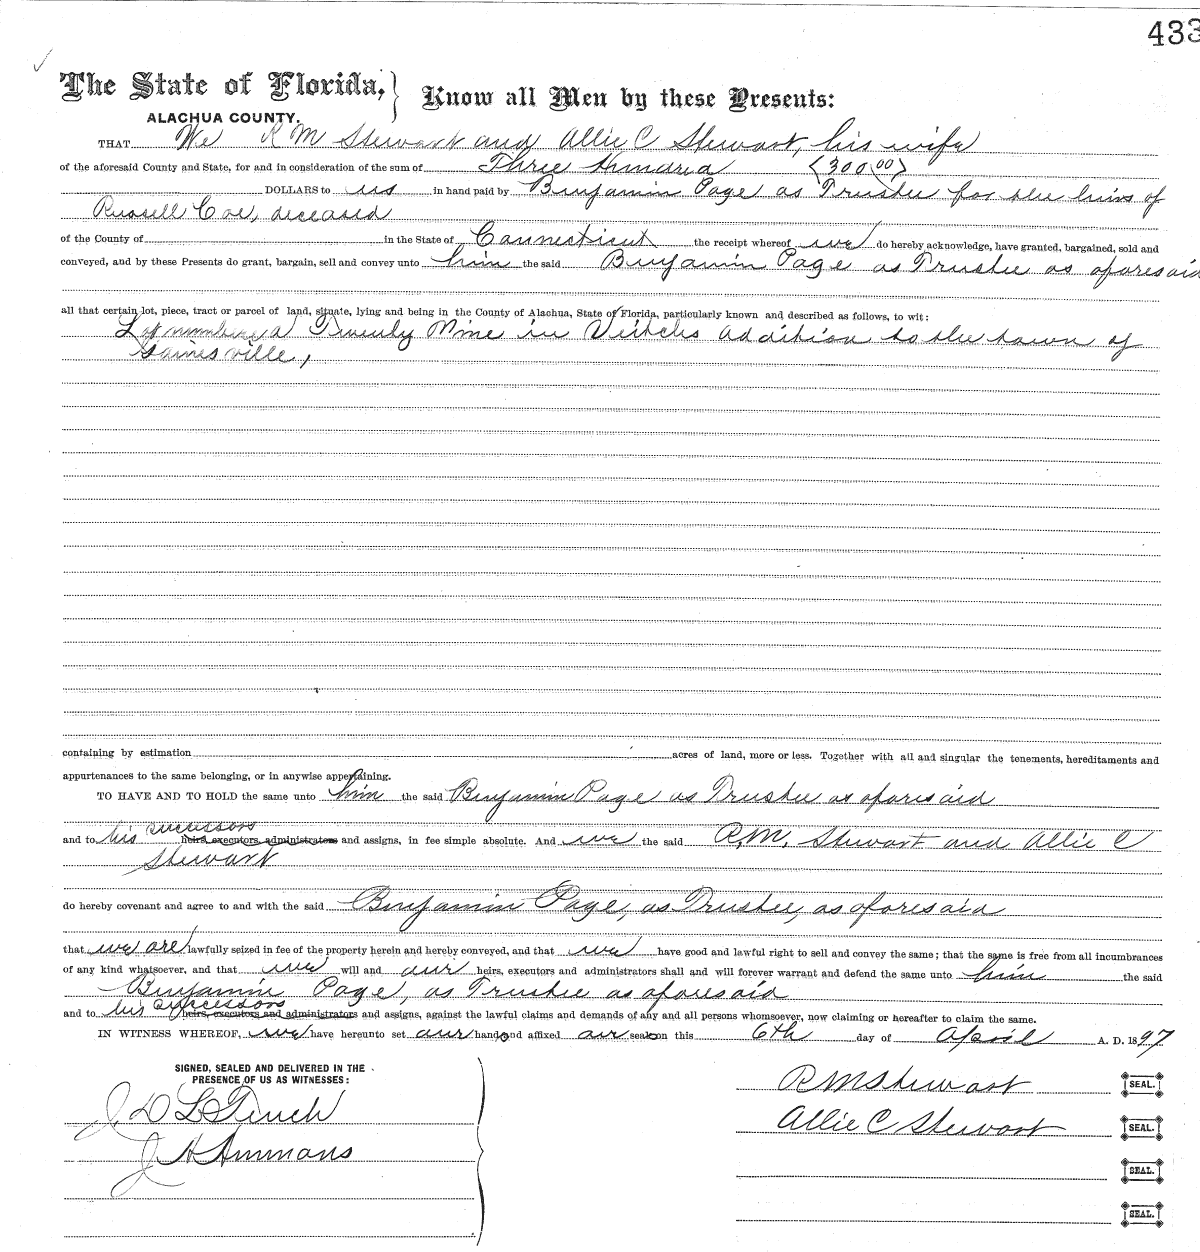 433
The State of Florida,
ALACHUA COUNTY.
Know all Men by these Presents:
THAT We R M Stewart and Allie C Stewart, his wife
of the aforesaid County and State, for and in consideration of the sum of Three Hundred (300 00)
DOLLARS to us in hand paid by Benjamin Page as Trustee for the heirs of
Russell Coe, deceased
of the County of in the State of Connecticut the receipt whereof we do hereby acknowledge, have granted, bargained, sold and
conveyed, and by these Presents do grant, bargain, sell and convey unto him the said Benjamin Page as Trustee as aforesaid
all that certain lot, piece, tract or parcel of land, situate, lying and being in the County of Alachua, State of Florida, particularly known and described as follows, to wit:
Lot numbered Twenty Nine in Veitchs addition to the town of
Gainesville,
containing by estimation acres of land, more or less. Together with all and singular the tenements, hereditaments and
appurtenances to the same belonging, or in anywise appertaining.
TO HAVE AND TO HOLD the same unto him the said Benjamin Page as Trustee as aforesaid
and to his successors heirs, executors, administrators and assigns, in fee simple absolute. And we the said R,M, Stewart and Allie C
Stewart
do hereby covenant and agree to and with the said Benjamin Page, as Trustee, as aforesaid
that we are lawfully seized in fee of the property herein and hereby conveyed, and that we have good and lawful right to sell and convey the same; that the same is free from all incumbrances
of any kind whatsoever, and that we will and our heirs, executors and administrators shall and will forever warrant and defend the same unto him the said
Benjamin Page, as Trustee as aforesaid
and to his successors heirs, executors and administrators and assigns, against the lawful claims and demands of any and all persons whomsoever, now claiming or hereafter to claim the same.
IN WITNESS WHEREOF, we have hereunto set our hands and affixed our seals on this 6th day of April A. D. 1897
SIGNED, SEALED AND DELIVERED IN THE
PRESENCE OF US AS WITNESSES:
J D L Tench
J H Ammons
R M Stewart SEAL.
Allie C Stewart SEAL.
SEAL.
SEAL.